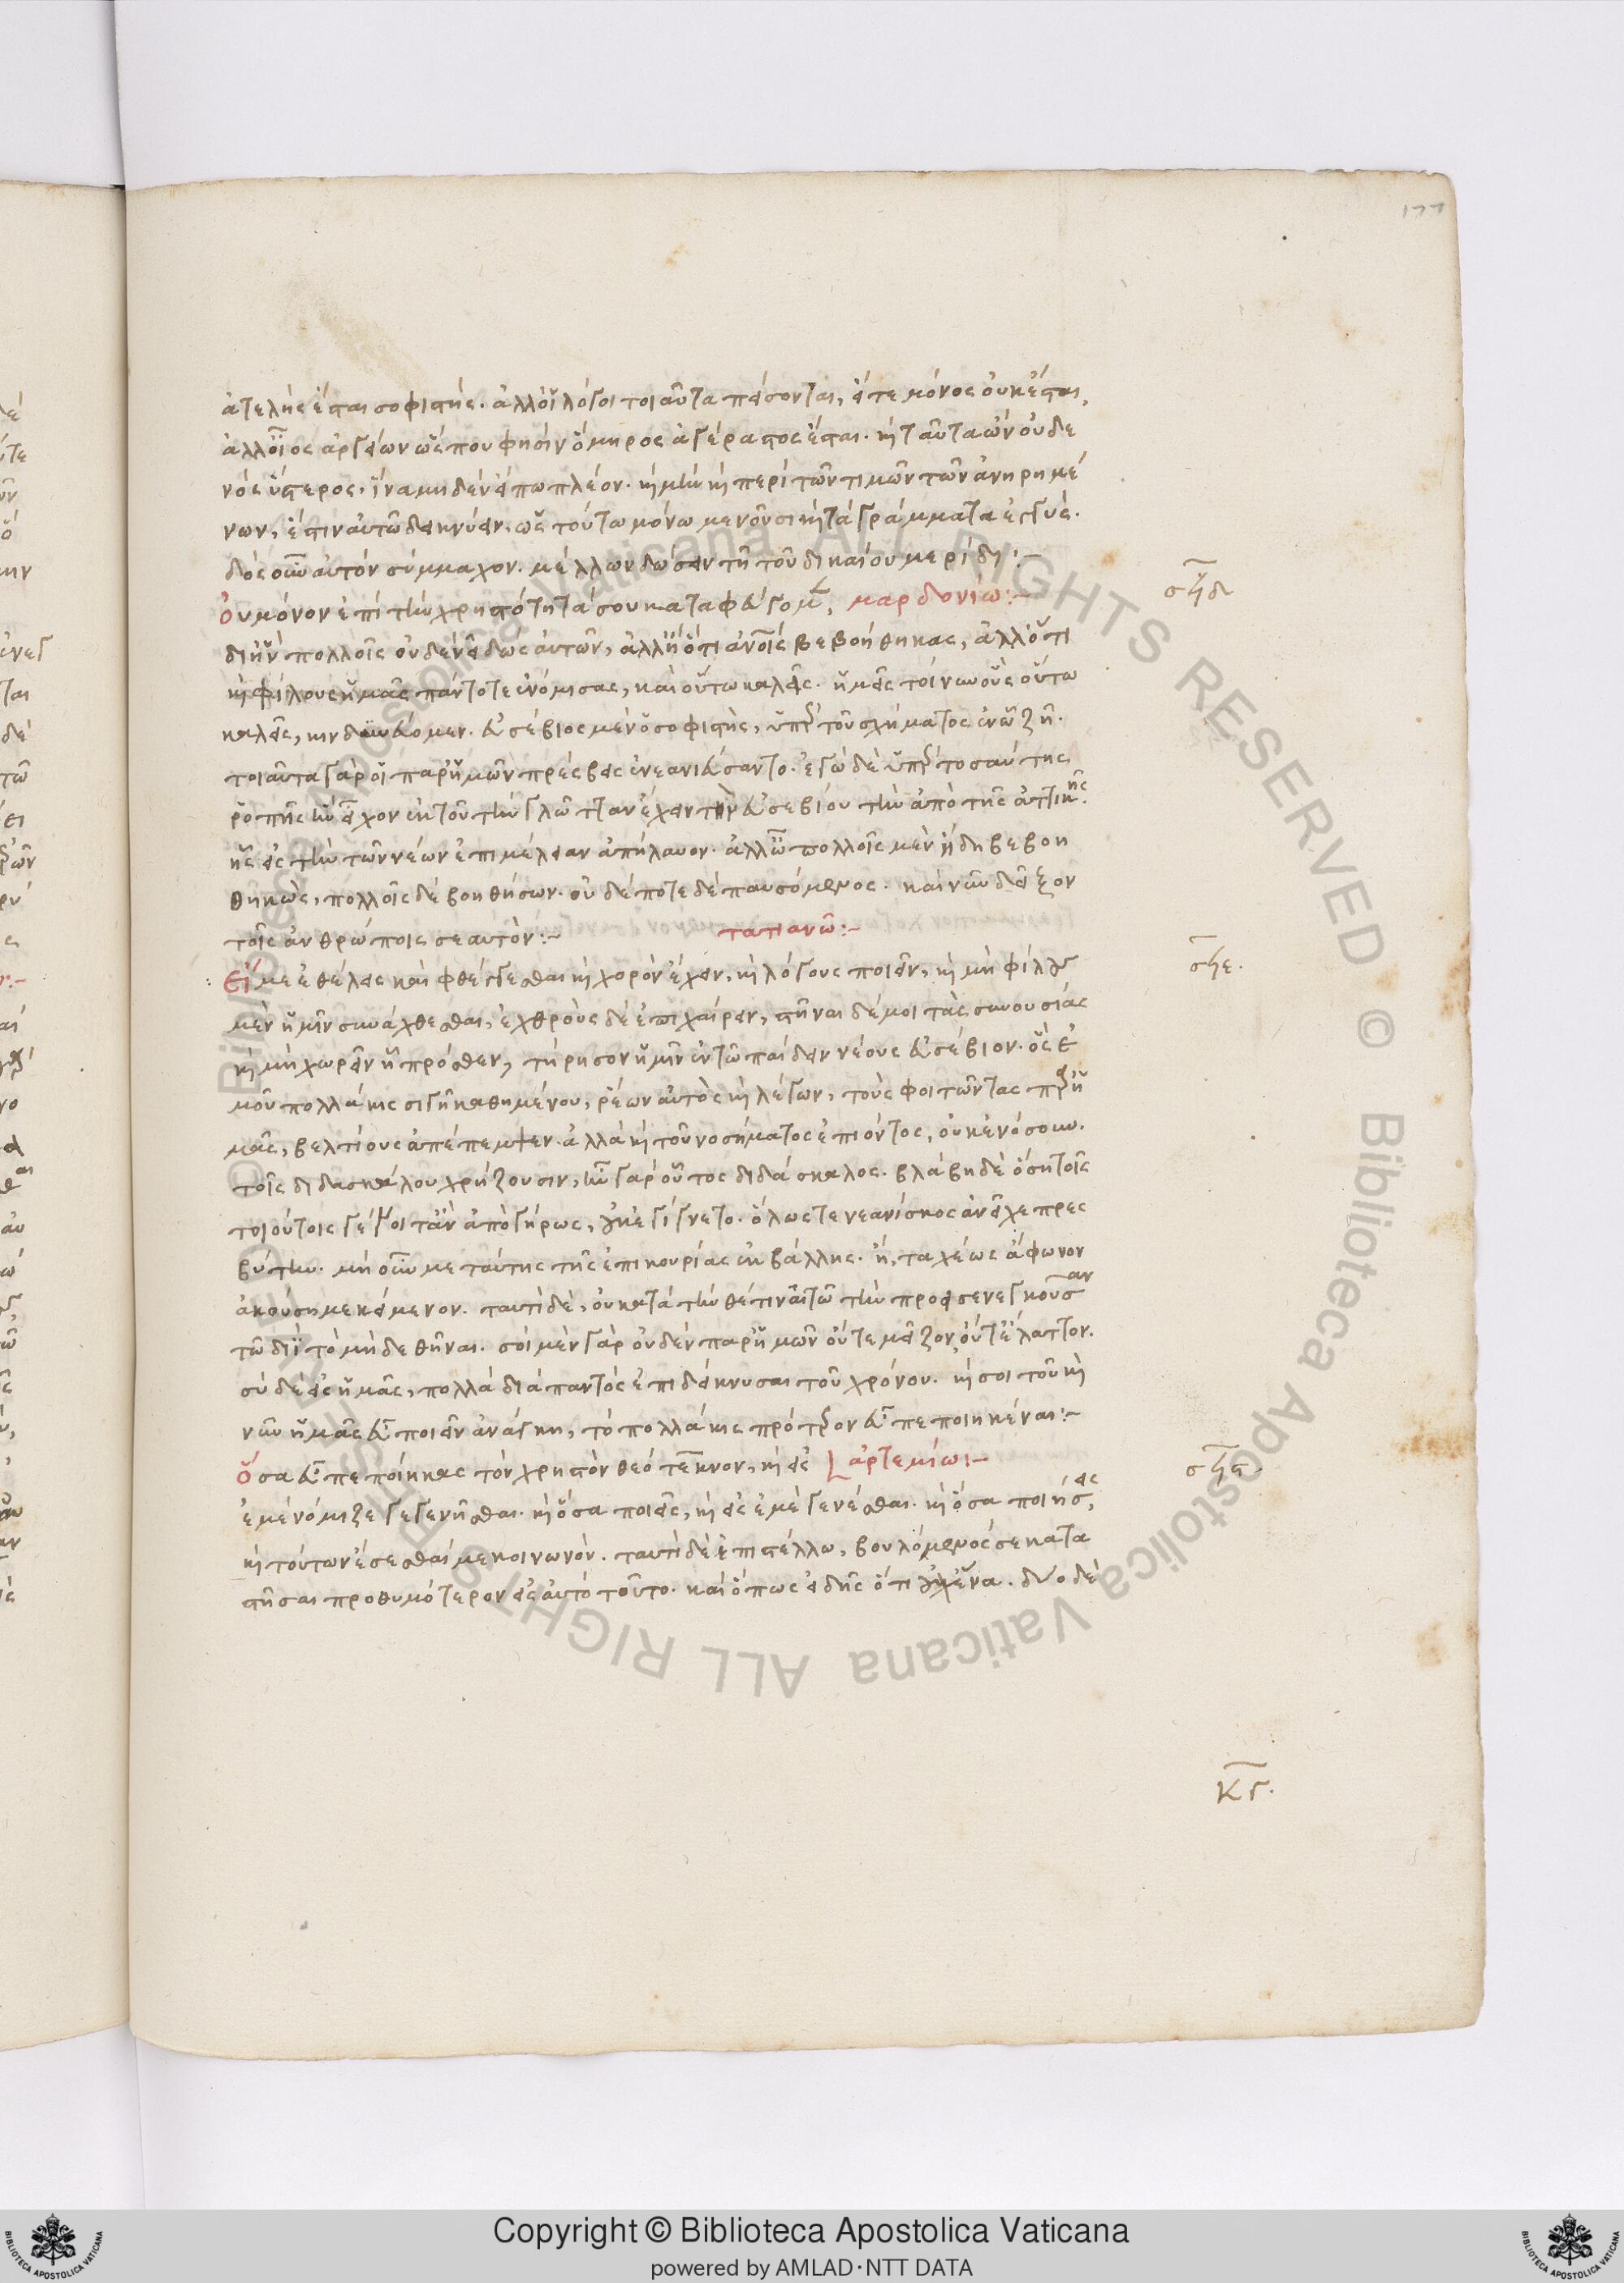 177
ἀτελὴς ἔσται σοφιστής. ἀλλ' οἱ λόγοι τοιαῦτα πείσονται, εἴ τε μόνος οὐκ ἔσται,
ἀλλ' οἷος ἀργείων ὥς που φησὶν ὅμηρος ἀγέραστος ἔσται. καὶ ταῦτα ὢν οὐδε
νὸς ὕστερος, ἵνα μηδὲν εἴπω πλέον. καὶ μὴν καὶ περὶ τῶν τιμῶν τῶν ἀνῃρημέ
νων, ἔστιν αὐτῶ δεικνύειν, ὡς τούτω μόνω μενοῦσι καὶ τὰ γράμματα ἐγγύς.
δὸς οὖν αὐτὸν σύμμαχον. μέλλων δώσειν τῆ τοῦ δικαίου μερίδι:~
Οὐ μόνον ἐπὶ τὴν χρηστότητά σου καταφεύγομεν, μαρδονίω:~ σϟδ
δι' ἣν πολλοῖς οὐδὲν εἰδὼς αὐτῶν, ἀλλ' ἢ ὅτι ἀνοις βεβοήθηκας, ἀλλ' ὅτι
καὶ φίλους ἡμᾶς πάντοτε ἐνόμισας, καὶ οὕτω καλεῖς. ἡμεῖς τοίνυν οὓς οὕτω
καλεῖς, κινδυνεύομεν. εὐσέβιος μὲν ὁ σοφιστὴς, ὑπὲρ τοῦ σχήματος ἐν ὧ ζῆ.
τοιαῦτα γὰρ οἱ παρ' ἡμῶν πρέσβεις ἐνεανιεύσαντο. ἐγὼ δὲ ὑπὲρ τοσαύτης
ῥοπῆς ἣν εἶχον ἐκ τοῦ τὴν γλῶτταν ἔχειν τὴν εὐσεβίου τὴν ἀπὸ τῆς ἀττικῆς.
ἧς εἰς τὴν τῶν νέων ἐπιμέλειαν ἀπήλαυον. ἀλλ' ὦ πολλοῖς μὲν ἤδη βεβοη
θηκὼς, πολλοῖς δὲ βοηθήσων. οὐδέποτε δὲ παυσόμενος. καὶ νῦν δεῖξον
τοῖς ἀνθρώποις σεαυτόν:~ τατιανῶ:~ σϟε.
Εἴ με ἐθέλεις καὶ φθέγγεσθαι καὶ χορὸν ἔχειν, καὶ λόγους ποιεῖν, καὶ μὴ φίλους
μὲν ἡμῖν συνάχθεσθαι, ἐχθροὺς δὲ ἐπιχαίρειν, στῆναι δέ μοι τὰς συνουσίας
καὶ μὴ χωρεῖν ἧ πρόσθεν, τήρησον ἡμῖν ἐν τῶ παίδειν νέους εὐσέβιον. ὃς ἐ
μοῦ πολλάκις σιγῆ καθημένου, ῥέων αὐτὸς καὶ λέγων, τοὺς φοιτῶντας παρ' ἡ
μᾶς, βελτίους ἀπέπεμψεν. ἀλλὰ καὶ τοῦ νοσήματος ἐπιόντος, οὐκ ἐνόσουν.
τοῖς διδασκάλου χρήζουσιν, ἦν γὰρ οὗτος διδάσκαλος. βλάβη δὲ ὅση τοῖς
τοιούτοις γένοιτ' ἂν ἀπὸ γήρως, οὐκ ἐγίγνετο. ὅλως τε νεανίσκος ἀνεῖχε πρεσ
βύτην. μὴ οὖν με ταύτης τῆς ἐπικουρίας ἐκβάλλης. ἢ, ταχέως ἄφωνον
ἀκούση με κείμενον. ταυτὶ δὲ, οὐ κατὰ τὴν θέτιν αἰτῶ τὴν προσενεγκοῦσαν
τῶ διῒ τὸ μὴ δεθῆναι. σοὶ μὲν γὰρ οὐδὲν παρ' ἡμῶν οὔτε μεῖζον, οὔτ' ἔλαττον.
σὺ δὲ εἰς ἡμᾶς, πολλὰ διὰ παντὸς ἐπιδείκνυσαι τοῦ χρόνου. καί σοι τοῦ καὶ
νῦν ἡμᾶς εὖ ποιεῖν ἀνάγκη, τὸ πολλάκις πρότερον εὖ πεποιηκέναι:~
Ὅσα εὖ πεποίηκας τὸν χρηστὸν θεότεκνον, καὶ εἰς ἀρτεμίω:~ σϟϛ
ἐμὲ νόμιζε γεγενῆσθαι. καὶ ὅσα ποιεῖς, καὶ εἰς ἐμὲ γενέσθαι. καὶ ὅσα ποιήσεις,
καὶ τούτων ἔσεσθαί με κοινωνόν. ταυτὶ δὲ ἐπιστέλλω, βουλόμενός σε κατα
στῆσαι προθυμότερον εἰς αὐτὸ τοῦτο. καὶ ὅπως εἰδῆς ὅτι οὐχ ἕνα. δύο δὲ
κγ.
Copyright © Biblioteca Apostolica Vaticana
powered by AMLAD·NTT DATA